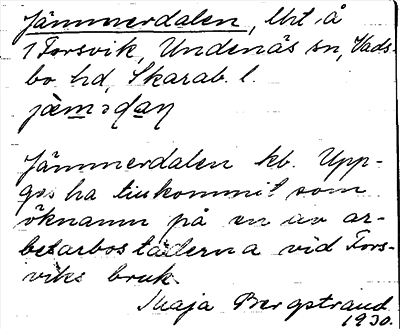 Jämmerdalen, lht å
1 Forsvik, Undenäs sn, Vads-
bo hd, Skarab. l.
jæmədaɳ
Jämmerdalen kb. Upp-
ges ha tillkommit som
öknamn på en av ar-
betarbostäderna vid Fors-
viks bruk.
Maja Bergstrand
1930.